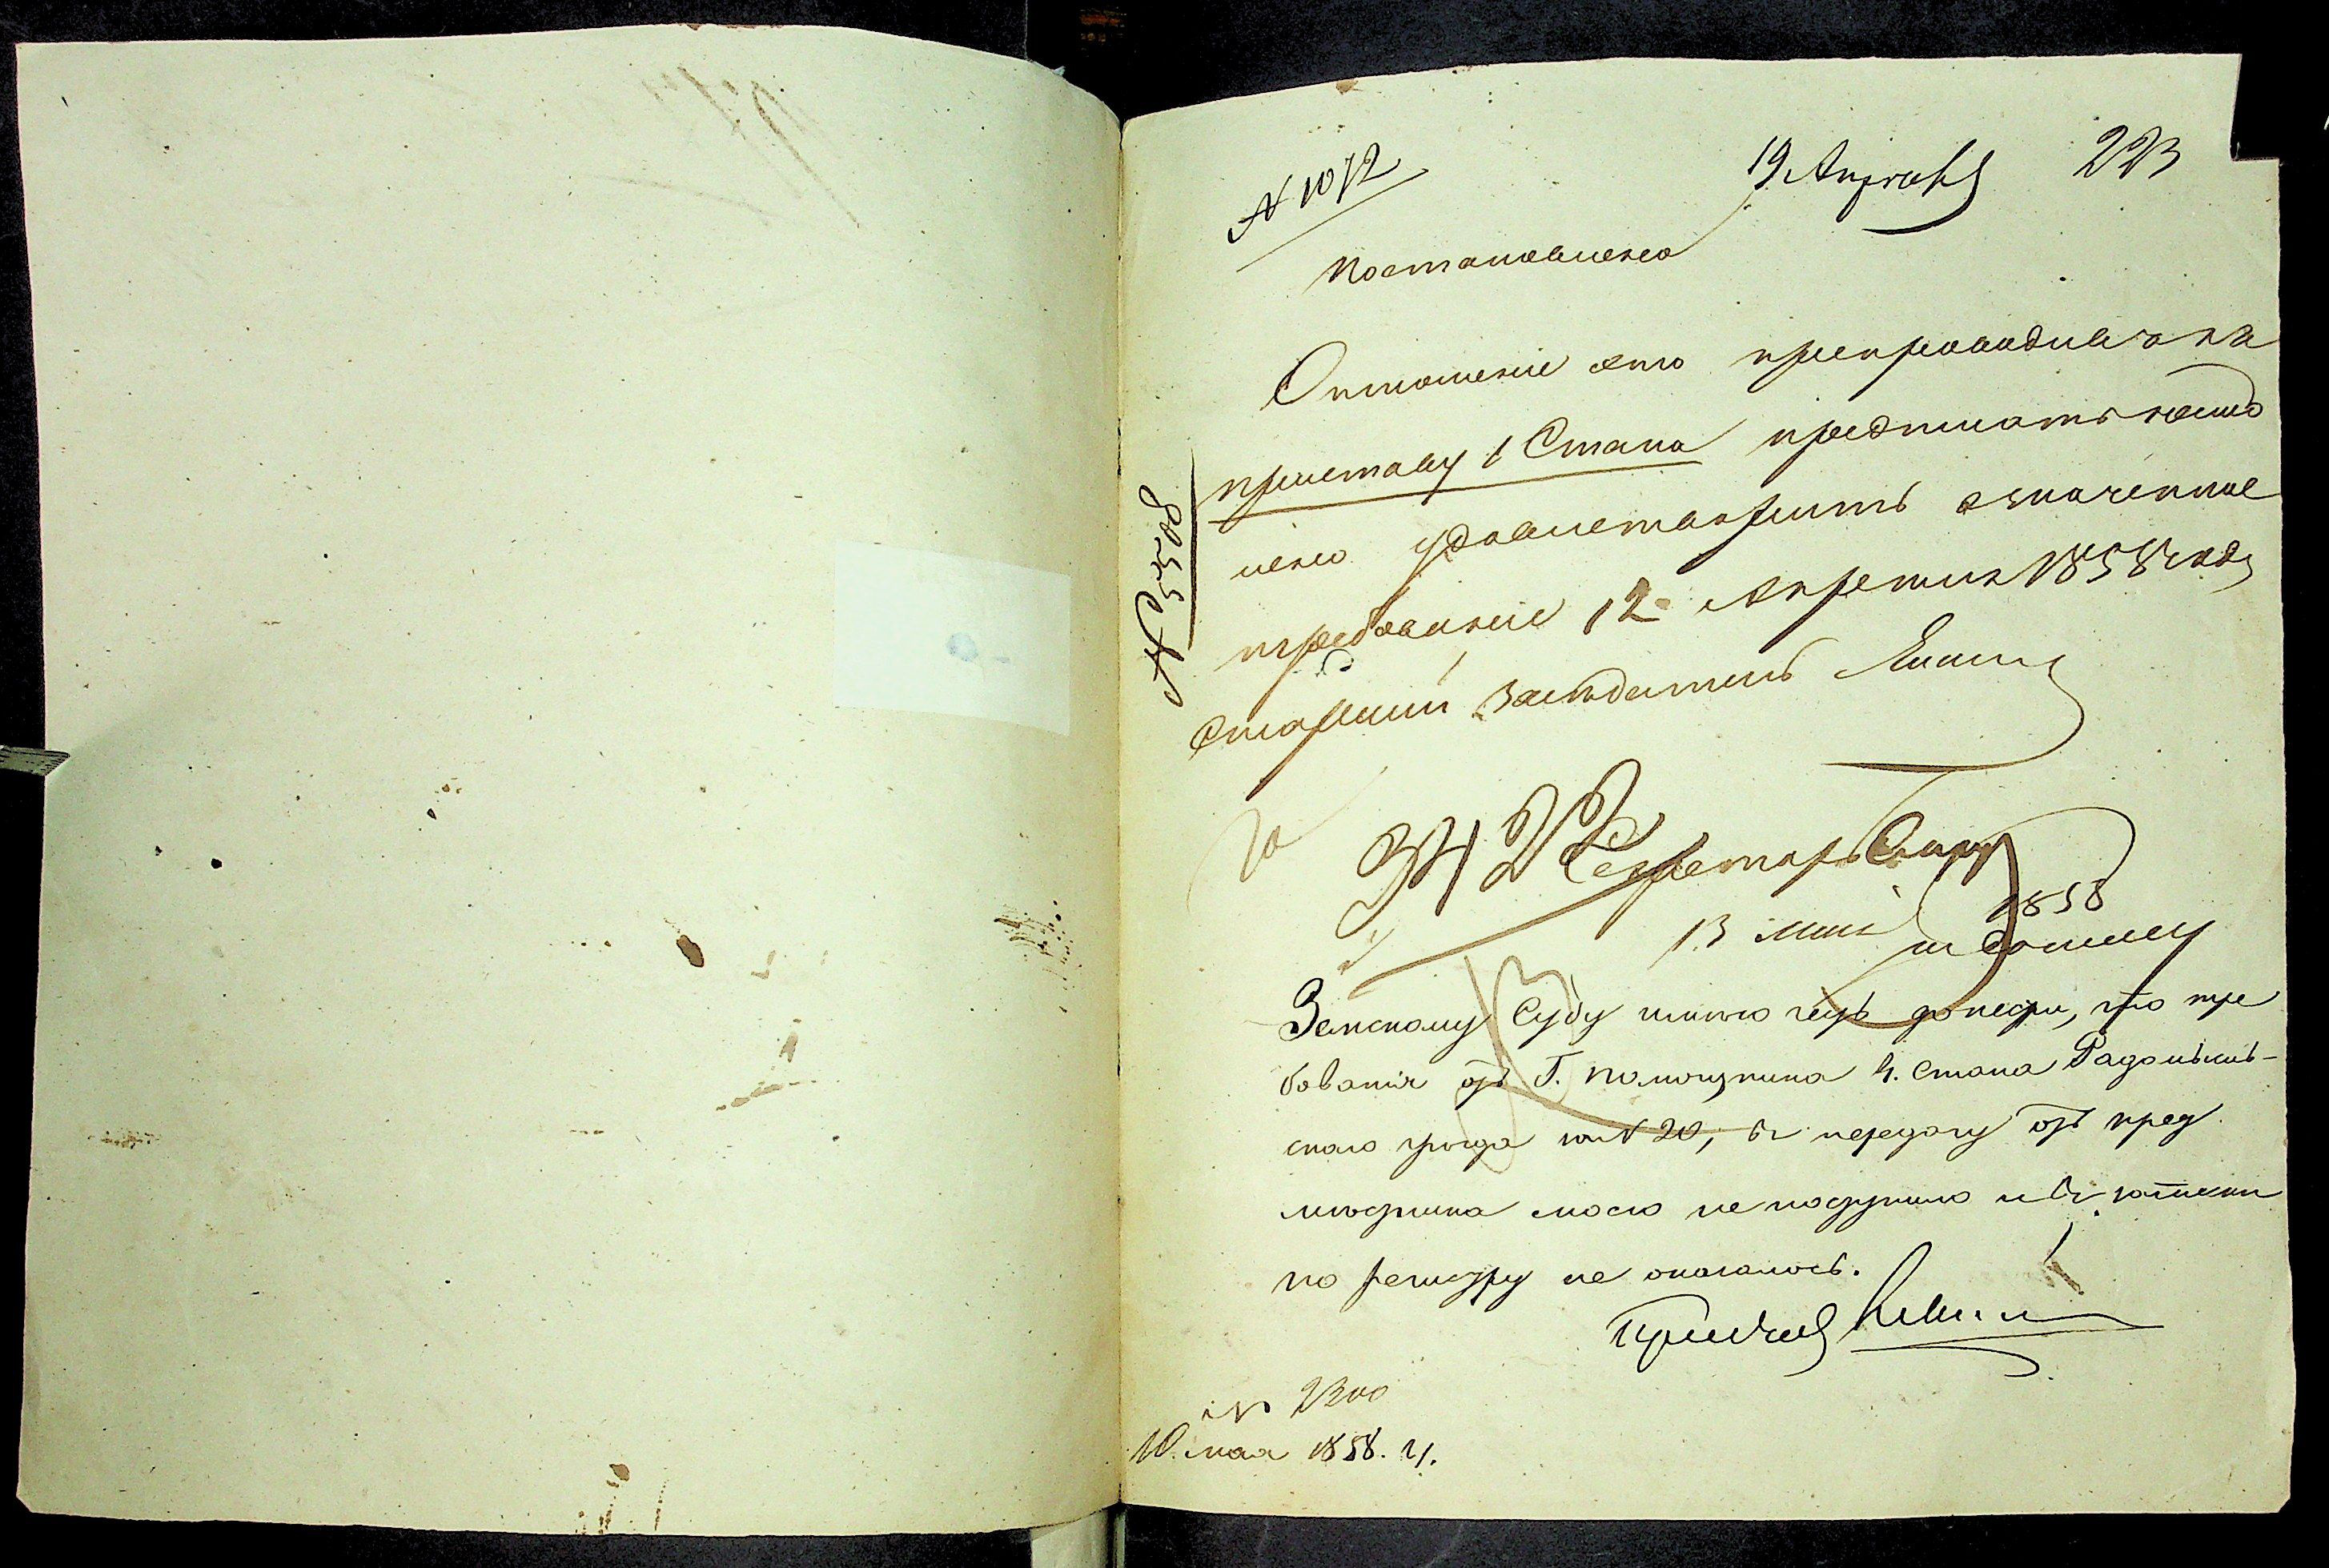 № 1072
19 Апреля 223
Постановлено
Отношение это препроводивъ къ
приставу 1 Стана предписать
ленно удовлетворить означенное
№ 5508
требование 12 Апреля 1858 года
Старший Заседатель
3422
Секретарь
13 мая 1858
Земскому Суду симъ честь донести, что тре
бованія отъ Г. Помощника 4. Стана Радомысль-
скаго уезда за № 20, въ передачу отъ пред
местника моего не поступило и въ
по регистру не оказалось.
Приставъ
№ 2300
10. мая 1858. г.